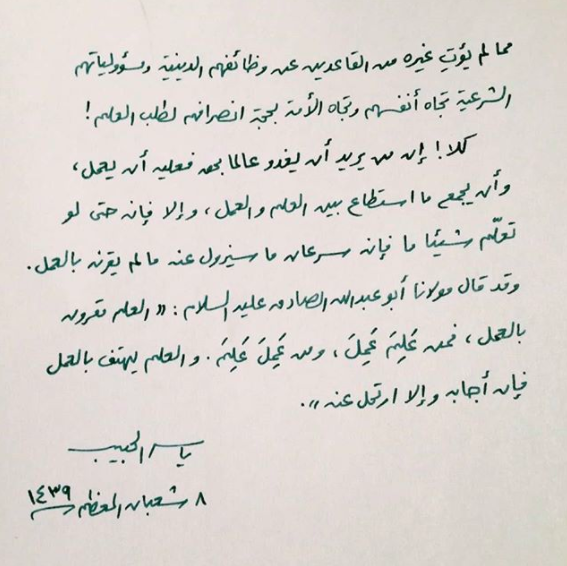 مما لم يؤتِ غيره من القاعدين عن وظائفهم الدينية ومسؤولياتهم
الشرعية تجاه أنفسهم وتجاه الأمة بحجة انصرافهم لطلب العلم!
كلا! إن من يريد أن يغدو عالما بحق فعليه أن يعمل،
وأن يجمع ما استطاع بين العلم والعمل، وإلا فإنه حتى لو
تعلّم شيئا ما فإنه سرعان ما سيزول عنه ما لم يقرنه بالعمل.
وقد قال مولانا أبو عبدالله الصادق عليه السلام: «العلم مقرون
بالعمل، فمن عَلِمَ عَمِلَ، ومن عَمِلَ عَلِمَ. والعلم يهتف بالعمل
فإن أجابه وإلا ارتحل عنه».
ياسر الحبيب
٨ شعبان المعظم ١٤٣٩